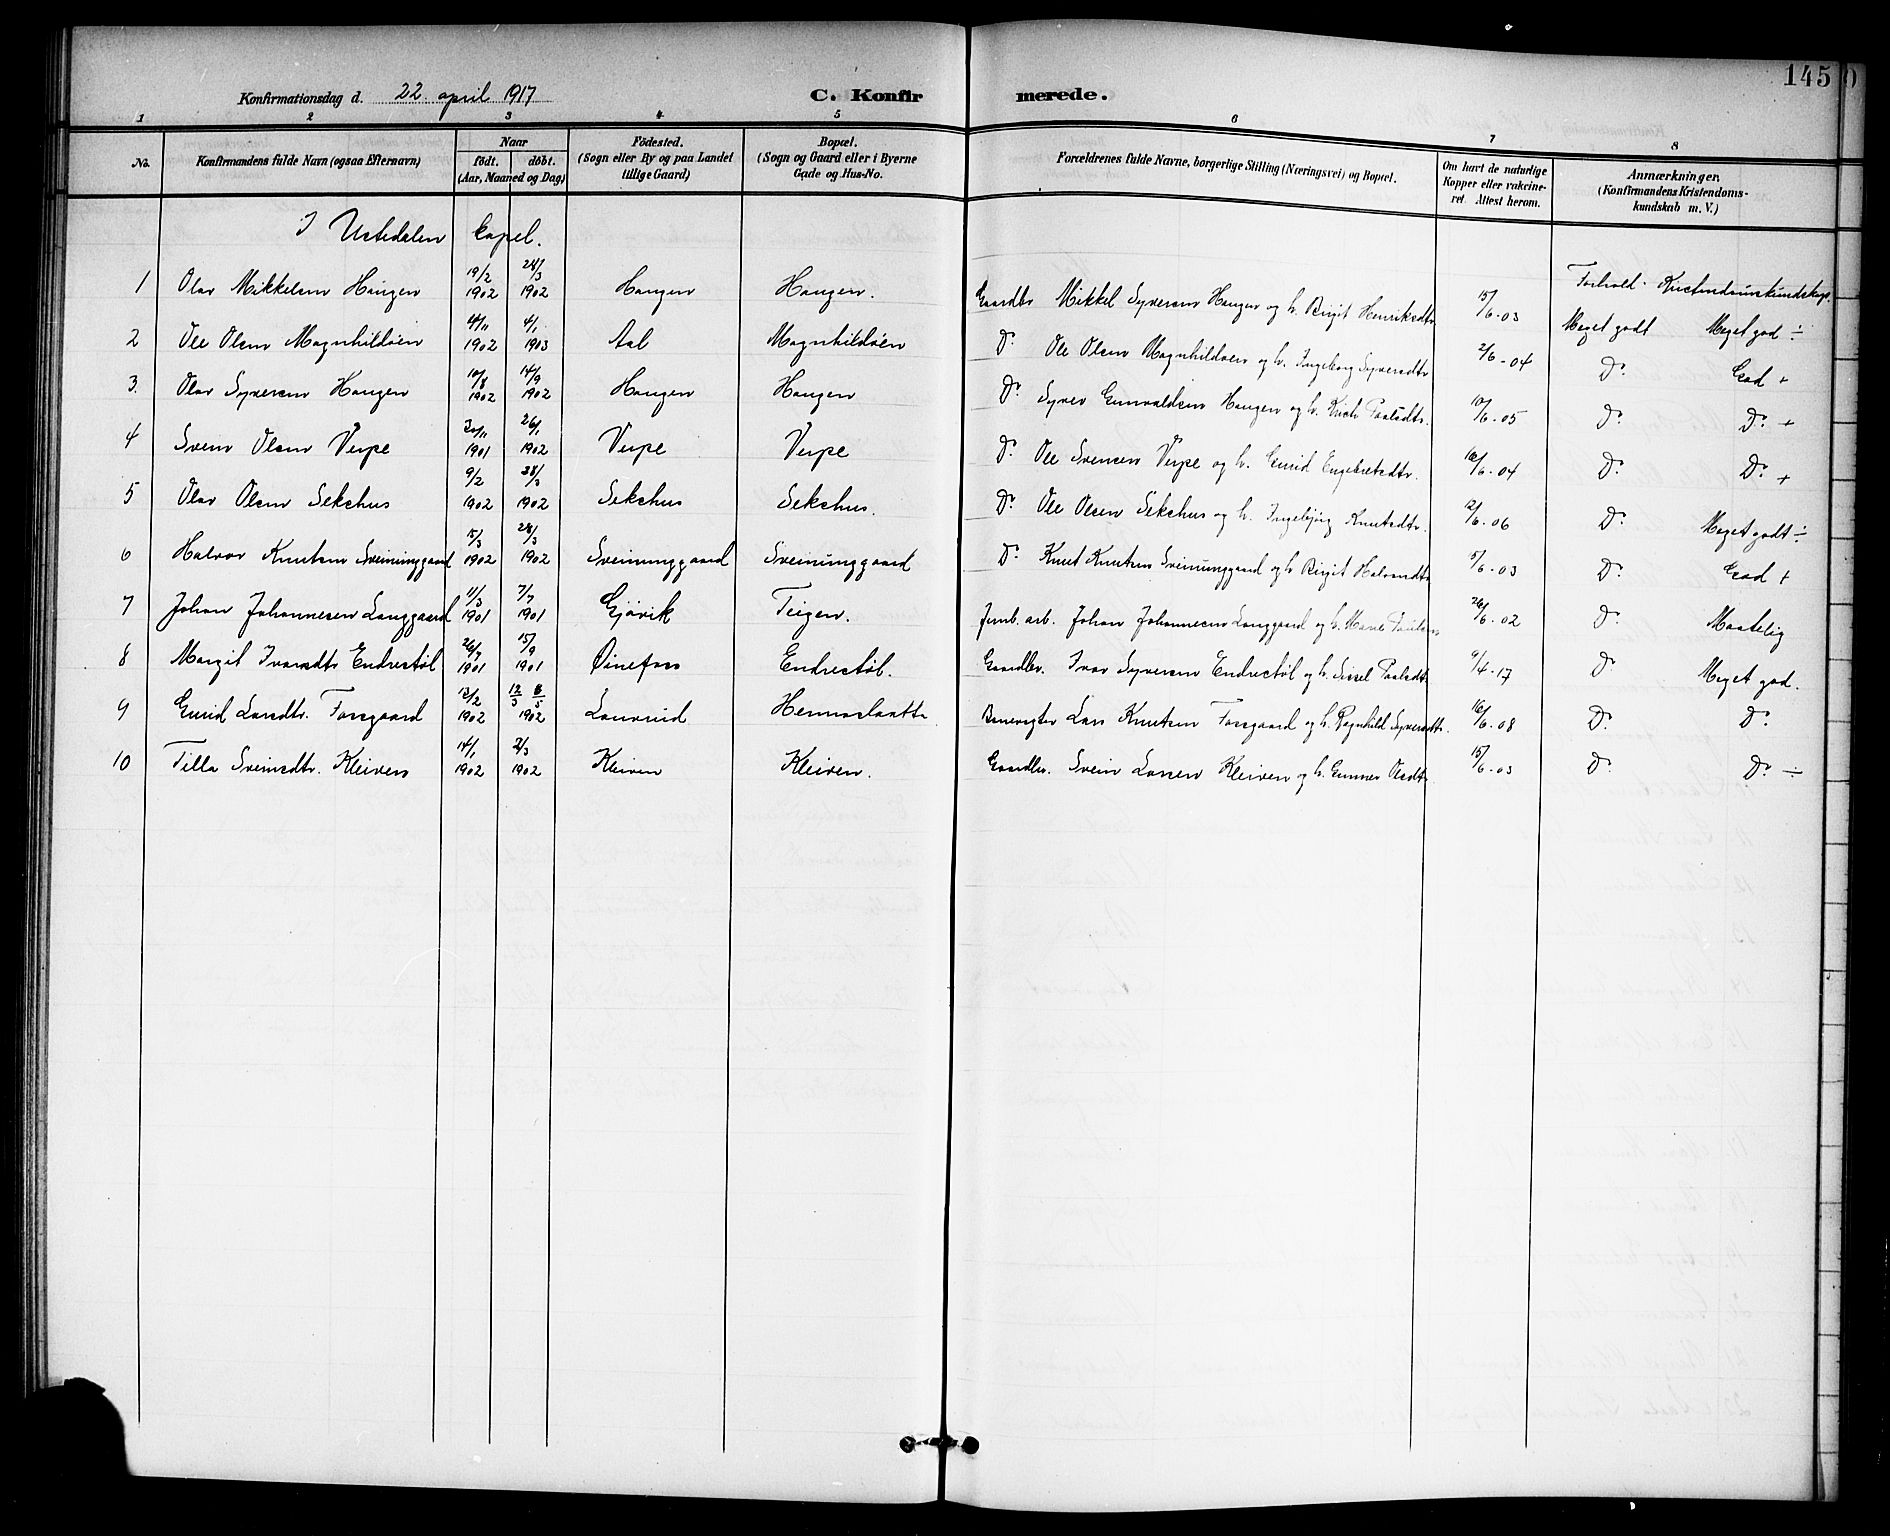 145
Konfirmationsdag d. 22. april 1917 C. Konfirmerede.
1 2 3 4 5 6 7 8
No. Konfirmandens fulde Navn (ogsaa Efternavn) Naar födt. döbt. (Aar, Maaned og Dag) Födested. (Sogn eller By og paa Landet tillige Gaard) Bopæl. (Sogn og Gaard eller i Byerne Gade og Hus-No. Forældrenes fulde Navne, borgerlige Stilling (Næringsvei) og Bopæl. Om havt de naturlige Kopper eller vakcineret. Attest herom. Anmærkninger. (Konfirmandens Kristendomskundskab m. V.)
I Ustedalen kapel.
Forhold. Kristendomskundskap.
1 Olav Mikkelsen Haugen 19/2 1902 1902 Haugen Haugen. Gaardbr Mikkel Syversen Haugen og h. Birgit Henriksdtr 15/6-03 Meget godt Meget god ÷
2 Ole Olsen Magnhildöen 1902 4/1 1903 Aal Magnhildöen Do Ole Olsen Magnhildöen og h. Ingeborg Syversdtr 2/6-04 Do. God +
3. Olav Syversen Haugen 10/8 1902 14/9 1902 Haugen Haugen Do Syver Gunvaldsen Haugen og h. Paalsdtr. 10/6-05 Do. Do. +
4 Svein Olsen Verpe 1901 26/1 1902 Verpe Verpe Do. Ole Svensen Verpe og h. Gurid Engebretsdtr. 6-04 Do. Do. +
5 Olav Olsen Sekshus 9/2 1902 1902 Sekshus Sekshus. Do Ole Olsen Sekshus og h. Ingebjörg Knutsdtr. 12/6-06 Do. Meget godt ÷
6 Halvor Knutsen Sveinunggaard 15/3 1902 1902 Sveinunggaard Sveinunggaard Do. Knut Knutsen Sveinunggaard og h Birgit Halvorsdtr 5/6-03 Do. God +
7 Johan Johannesen Langgaard 11/3 1901 7/7 1901 Gjövik Teigen. Jernb. arb. Johan Johannesen Langgaard og h. 26/6-02 Do. Maatelig
8 Margit Ivarsdtr Endrestöl 26/7 1901 15/9 1901 Öinefoss Endrestöl. Gaardbr. Ivar Syversen Endrestöl og h. Sissel Paalsdtr. 9/4-17 Do Meget god.
9 Gurid Larsdtr. Fossgaard 1902 1902 Laurud Banevogter Lars Knutsen Fossgaard og h. Ragnhild Syversdtr. 16/6-08 Do. Do.
10 Tilla Sveinsdtr. Kleiven 14/1 1902 2/3 1902 Kleiven Kleiven. Gaardbr. Svein Larsen Kleiven og h. Gunner Olsdtr 15/6-03 Do. Do. ÷